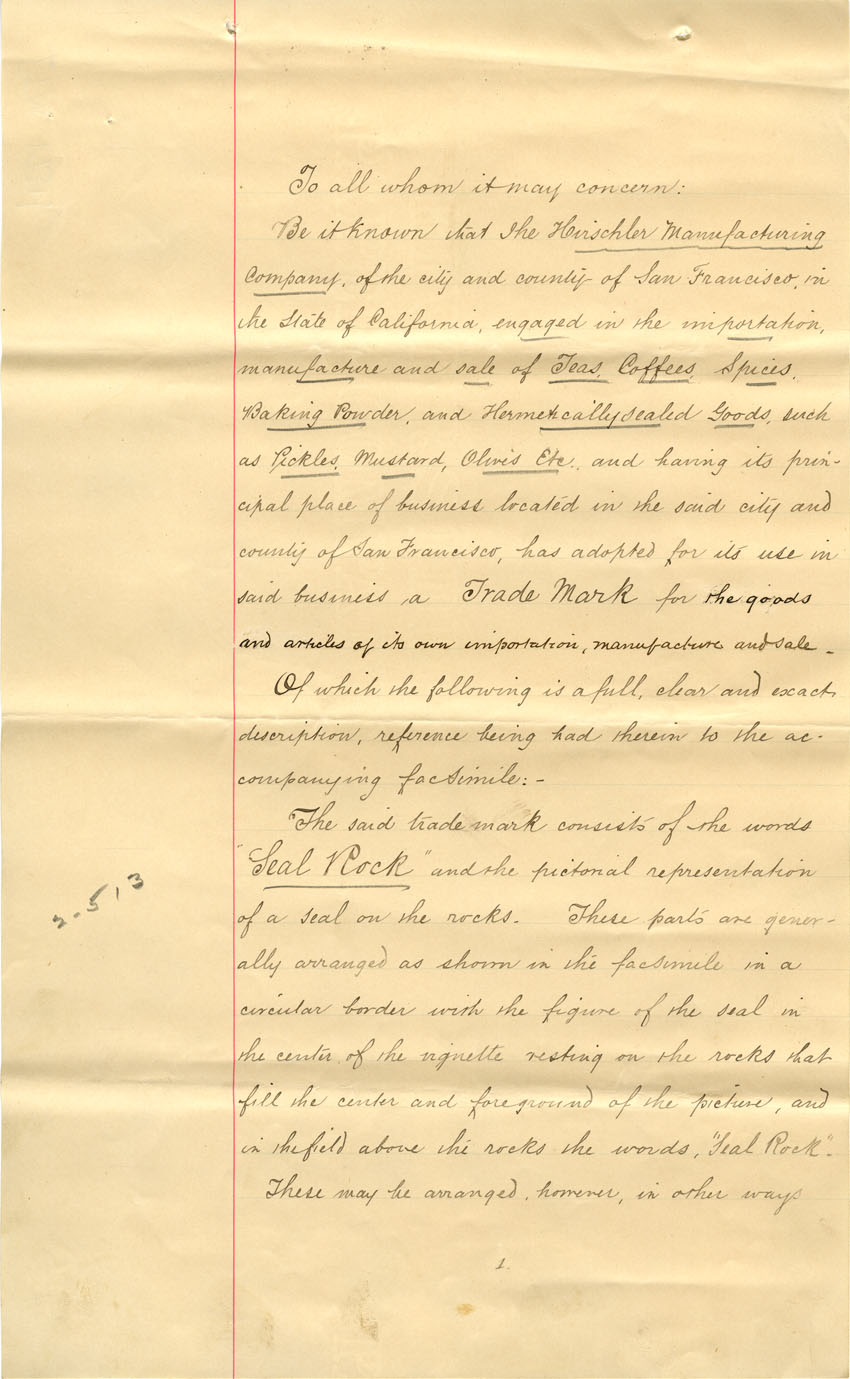 To all whom it may concern:
Be it Known that the Hirschler Manufacturing
Company, of the city and county of San Francisco, in
the State of California, engaged in the importation,
manufacture and sale of Teas, Coffees, Spices,
Baking Powder, and Hermetically Sealed Goods, such
as Pickles, Mustard, Olives Etc., and having its prin-
cipal place of business located in the said city and
county of San Francisco, has adopted for its use in
said business a Trade Mark for the goods
and articles of its own importation, manufacture and sale -
Of which the following is a full, clear and exact
description, reference being had therein to the ac-
companying facsimile: -
The said trade mark consists of the words
"Seal Rock" and the pictorial representation
of a seal on the rocks. These parts are gener-
ally arranged as shown in the facsimile in a
circular border with the figure of the seal in
the center of the vignette resting on the rocks that
fill the center and foreground of the picture, and
in the field above the rocks the words, "Seal Rock".
These may be arranged, however, in other ways
2-513
1.